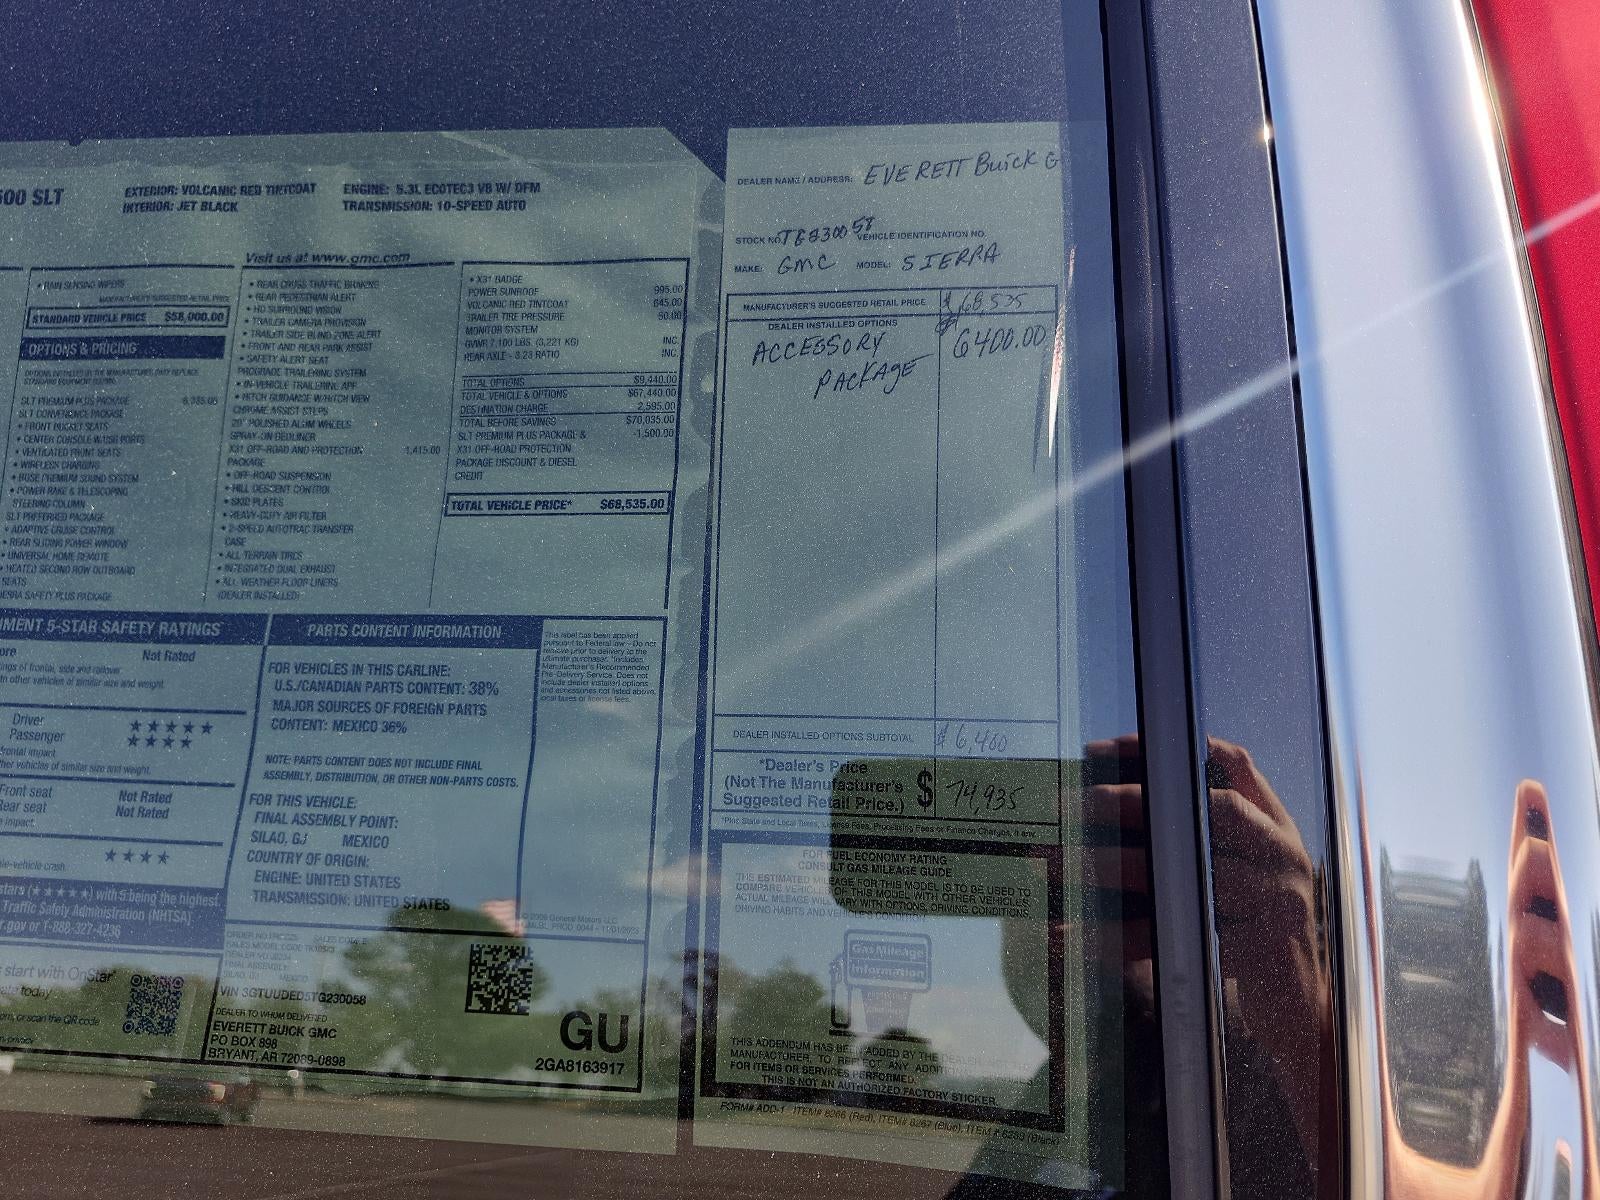 500 SLT
EXTERIOR: VOLCANIC RED TINTCOAT
INTERIOR: JET BLACK
ENGINE: 5.3L ECOTEC3 V8 W/ DFM
TRANSMISSION: 10-SPEED AUTO
Visit us at www.gmc.com
• RAIN SENSING WIPERS
MANUFACTURER'S SUGGESTED RETAIL PRICE
STANDARD VEHICLE PRICE $58,000.00
OPTIONS & PRICING
OPTIONS INSTALLED BY THE MANUFACTURER (MAY REPLACE
STANDARD EQUIPMENT SHOWN)
SLT PREMIUM PLUS PACKAGE 6,335.00
SLT CONVENIENCE PACKAGE
• FRONT BUCKET SEATS
• CENTER CONSOLE W/USB PORTS
• VENTILATED FRONT SEATS
• WIRELESS CHARGING
• BOSE PREMIUM SOUND SYSTEM
• POWER RAKE & TELESCOPING
STEERING COLUMN
SLT PREFERRED PACKAGE
• ADAPTIVE CRUISE CONTROL
• REAR SLIDING POWER WINDOW
• UNIVERSAL HOME REMOTE
• HEATED SECOND ROW OUTBOARD
SEATS
SIERRA SAFETY PLUS PACKAGE
• REAR CROSS TRAFFIC BRAKING
• REAR PEDESTRIAN ALERT
• HD SURROUND VISION
• TRAILER CAMERA PROVISION
• TRAILER SIDE BLIND ZONE ALERT
• FRONT AND REAR PARK ASSIST
• SAFETY ALERT SEAT
PROGRADE TRAILERING SYSTEM
• IN-VEHICLE TRAILERING APP
• HITCH GUIDANCE W/HITCH VIEW
CHROME ASSIST STEPS
20" POLISHED ALUM WHEELS
SPRAY-ON BEDLINER
X31 OFF-ROAD AND PROTECTION 1,415.00
PACKAGE
• OFF-ROAD SUSPENSION
• HILL DESCENT CONTROL
• SKID PLATES
• HEAVY-DUTY AIR FILTER
• 2-SPEED AUTOTRAC TRANSFER
CASE
• ALL TERRAIN TIRES
• INTEGRATED DUAL EXHAUST
• ALL-WEATHER FLOOR LINERS
(DEALER INSTALLED)
• X31 BADGE
POWER SUNROOF 995.00
VOLCANIC RED TINTCOAT 645.00
TRAILER TIRE PRESSURE 50.00
MONITOR SYSTEM
GVWR 7,100 LBS. (3,221 KG) INC.
REAR AXLE - 3.23 RATIO INC.
TOTAL OPTIONS $9,440.00
TOTAL VEHICLE & OPTIONS $67,440.00
DESTINATION CHARGE 2,595.00
TOTAL BEFORE SAVINGS $70,035.00
SLT PREMIUM PLUS PACKAGE & -1,500.00
X31 OFF-ROAD PROTECTION
PACKAGE DISCOUNT & DIESEL
CREDIT
TOTAL VEHICLE PRICE* $68,535.00
5-STAR SAFETY RATINGS
Not Rated
ings of frontal, side and rollover
other vehicles of similar size and weight.
Driver ★★★★★
Passenger ★★★★
frontal impact.
her vehicles of similar size and weight.
Front seat Not Rated
Rear seat Not Rated
impact.
le-vehicle crash. ★★★★
stars (★★★★★) with 5 being the highest.
Traffic Safety Administration (NHTSA)
r.gov or 1-888-327-4236
start with OnStar
today
or scan the QR code
PARTS CONTENT INFORMATION
FOR VEHICLES IN THIS CARLINE:
U.S./CANADIAN PARTS CONTENT: 38%
MAJOR SOURCES OF FOREIGN PARTS
CONTENT: MEXICO 36%
NOTE: PARTS CONTENT DOES NOT INCLUDE FINAL
ASSEMBLY, DISTRIBUTION, OR OTHER NON-PARTS COSTS.
FOR THIS VEHICLE:
FINAL ASSEMBLY POINT:
SILAO, GJ MEXICO
COUNTRY OF ORIGIN:
ENGINE: UNITED STATES
TRANSMISSION: UNITED STATES
This label has been applied
pursuant to Federal law - Do not
remove prior to delivery to the
ultimate purchaser. *Includes
Manufacturer's Recommended
Pre-Delivery Service. Does not
include dealer installed options
and accessories not listed above,
local taxes or license fees.
General Motors LLC
VIN 3GTUUDED5TG230058
DEALER TO WHOM DELIVERED
EVERETT BUICK GMC
PO BOX 898
BRYANT, AR 72089-0898
GU
2GA8163917
DEALER NAME / ADDRESS: EVERETT Buick G
STOCK NO. VEHICLE IDENTIFICATION NO.
MAKE: GMC MODEL: SIERRA
MANUFACTURER'S SUGGESTED RETAIL PRICE $68,535
DEALER INSTALLED OPTIONS
ACCESSORY PACKAGE $6400.00
DEALER INSTALLED OPTIONS SUBTOTAL $6,400
*Dealer's Price
(Not The Manufacturer's
Suggested Retail Price.) $ 74,935
*Plus State and Local Taxes, License Fees, Processing Fees or Finance Charges, if any.
FOR FUEL ECONOMY RATING
CONSULT GAS MILEAGE GUIDE
THE ESTIMATED MILEAGE FOR THIS MODEL IS TO BE USED TO
COMPARE VEHICLES OF THIS MODEL WITH OTHER VEHICLES.
ACTUAL MILEAGE WILL VARY WITH OPTIONS, DRIVING CONDITIONS,
DRIVING HABITS AND VEHICLE'S CONDITION.
Gas Mileage
Information
THIS ADDENDUM HAS BEEN ADDED BY THE DEALER
MANUFACTURER, TO REFLECT ANY ADDITIONAL
FOR ITEMS OR SERVICES PERFORMED.
THIS IS NOT AN AUTHORIZED FACTORY STICKER.
FORM# ADD-1 ITEM# 8266 (Red), ITEM# 8267 (Blue), ITEM # 8253 (Black)